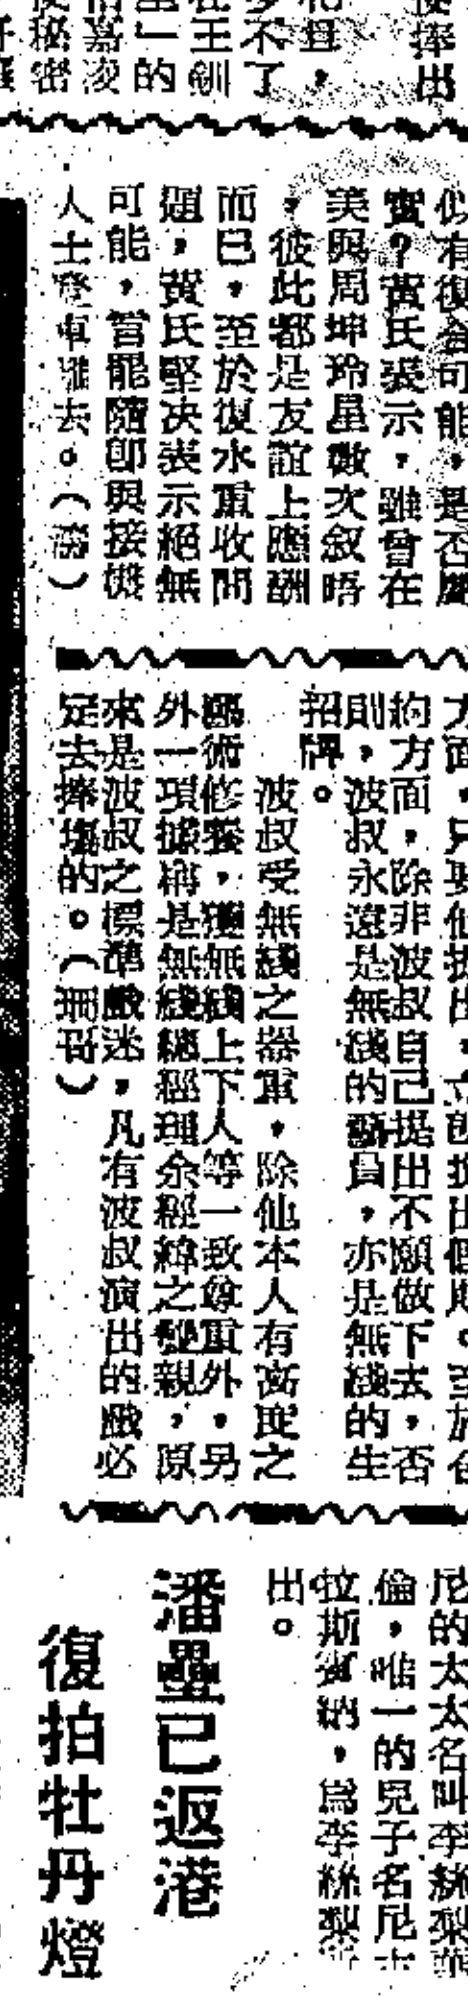 捧出
和聲，
多不了
在王釧
里」的
倩嘉凌
使秘密
似有復合可能，是否屬
實？黃氏表示，雖曾在
美與周坤玲星數次叙晤
，彼此都是友誼上應酬
而已，至於復水重收問
題，黃氏堅决表示絕無
可能，言罷隨卽與接機
人士登車離去。（勝）
方面，只要他提出，立刻
約方面，除非波叔自己提出不願做下去，否
則，波叔永遠是無綫的藝員，亦是無綫的生
招牌。
波叔受無綫之器重，除他本人有高度之
藝術修養，獲無綫上下人等一致尊重外，另
外一項據稱是無綫總經理余經緯之雙親，原
來是波叔之標準戲迷，凡有波叔演出的戲必
定去捧塲的。（珊哥）
尼的太太名叫李絲梨
倫，唯一的兒子名尼古
拉斯賓納，爲李絲梨所
出。
潘壘已返港
復拍牡丹燈